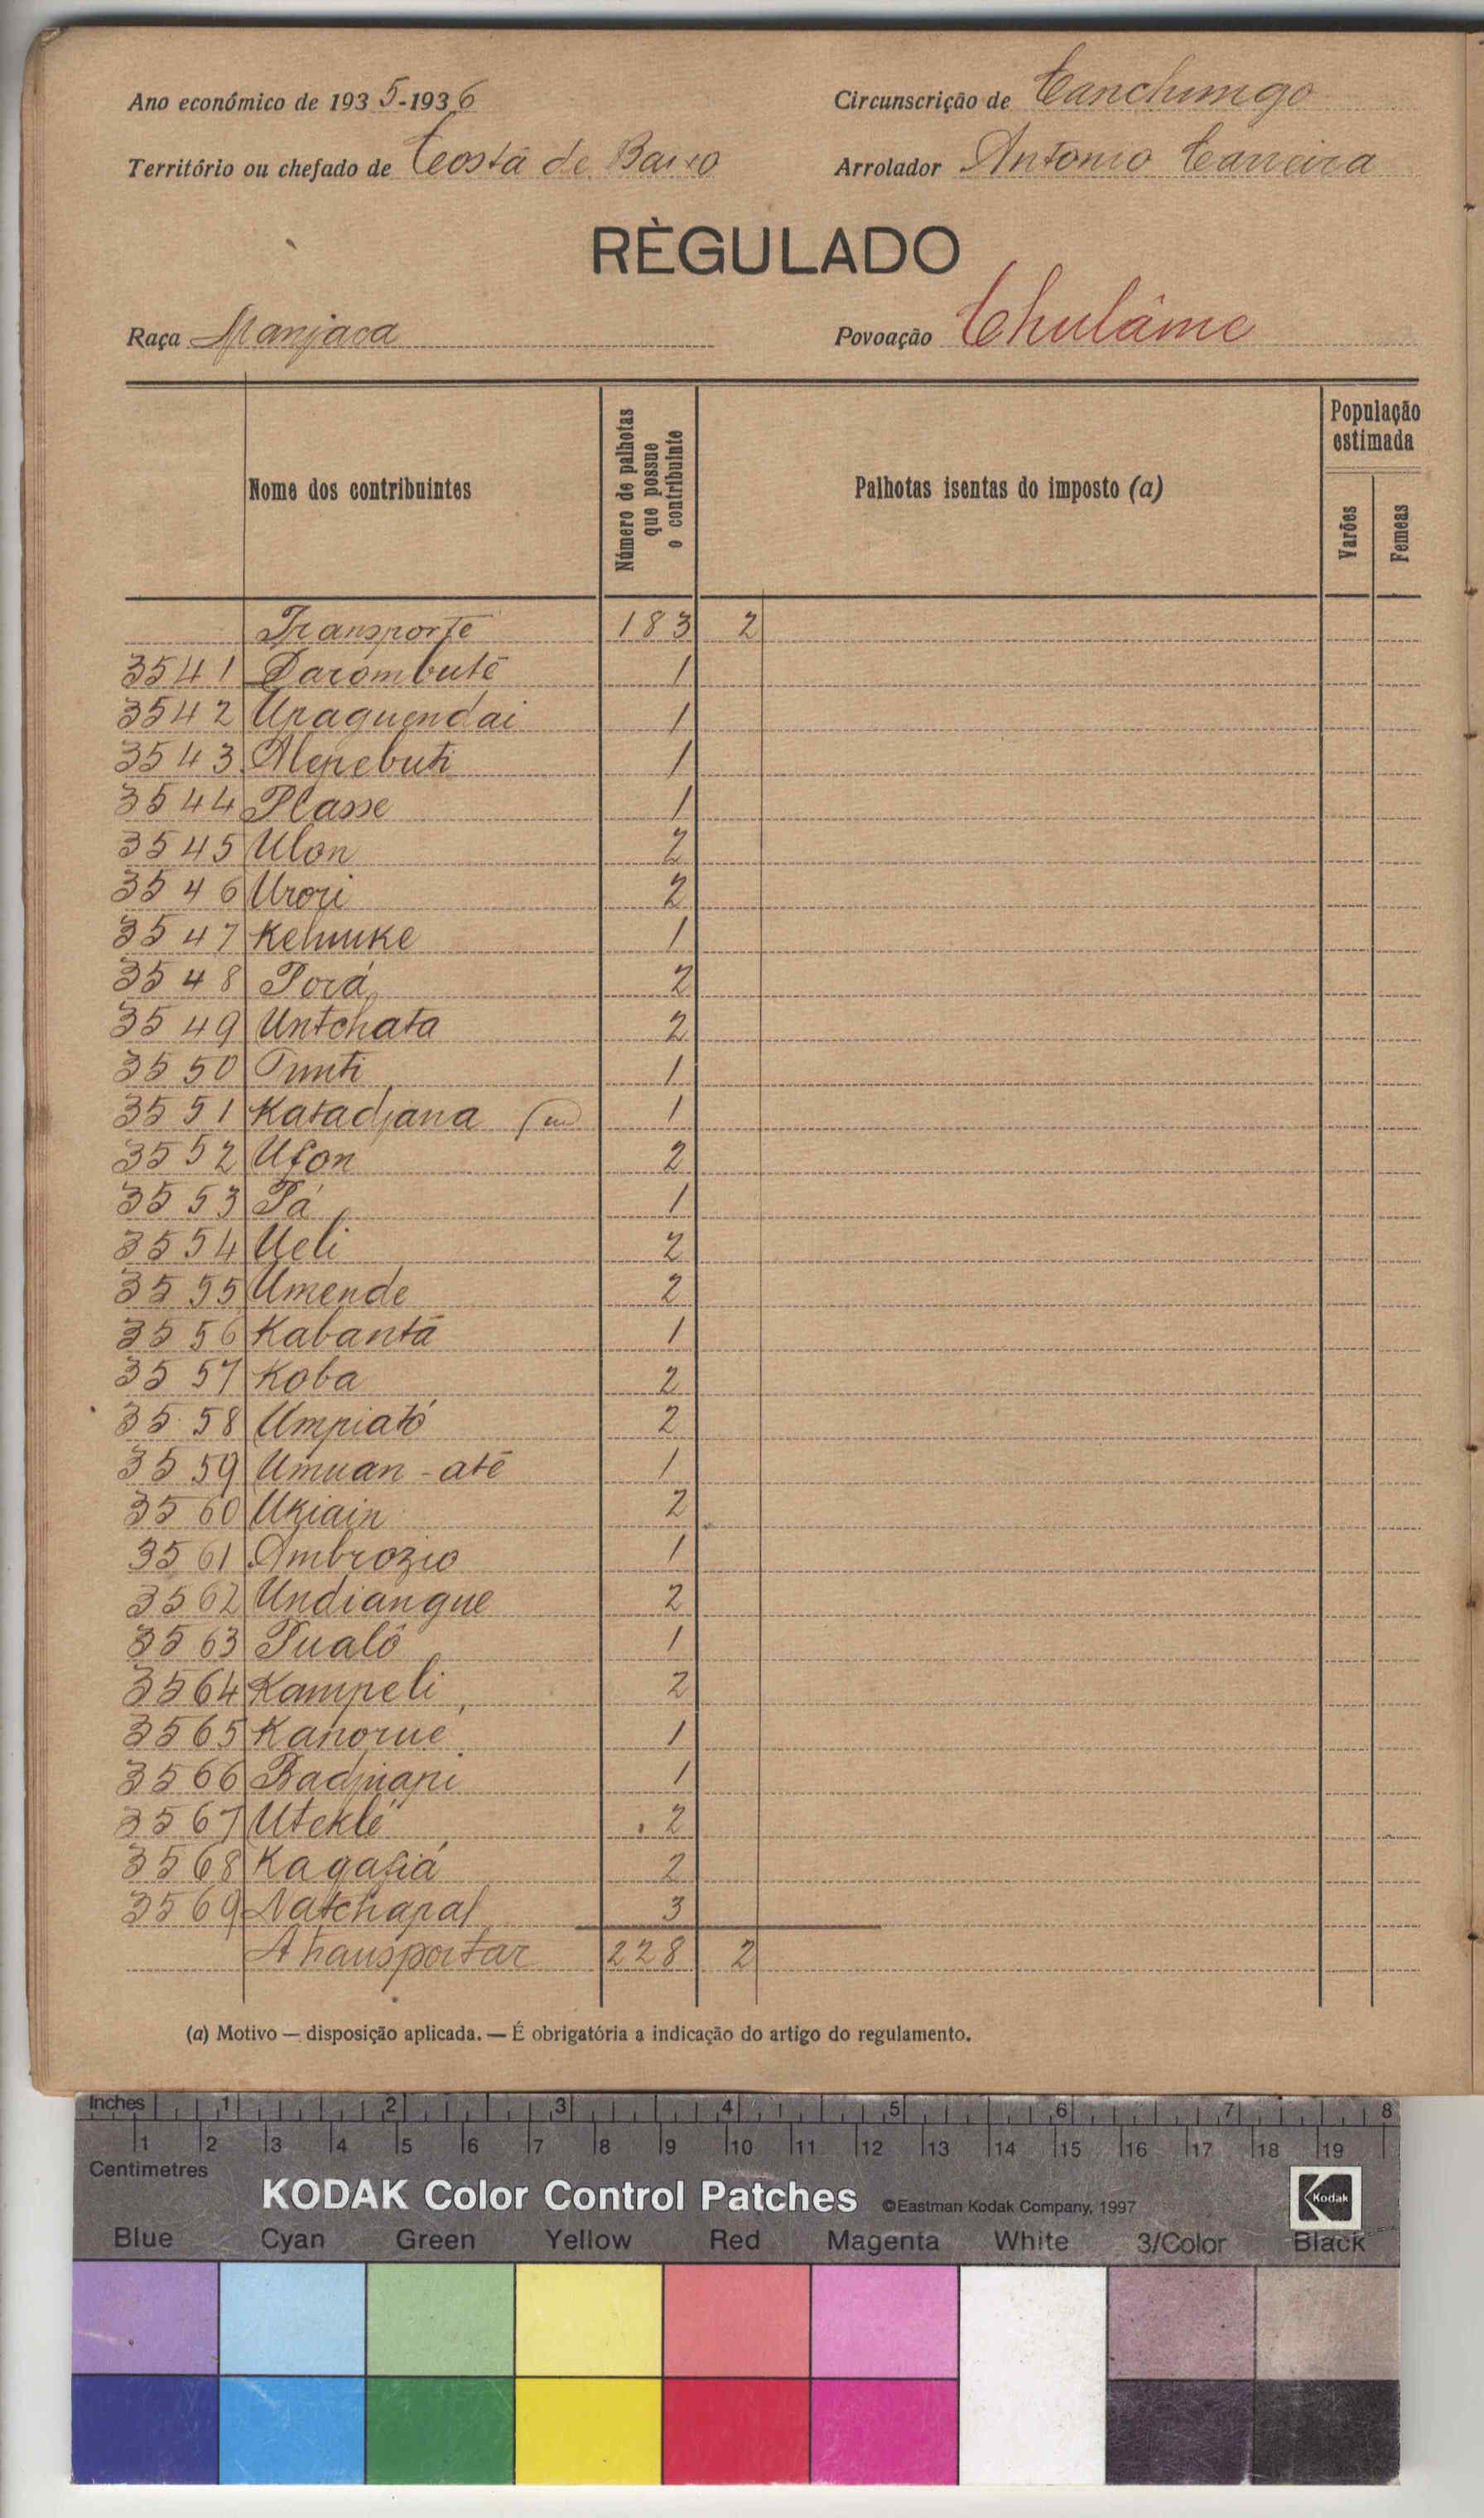 Ano económico de 1935-1936 Circunscrição de Canchungo
Território ou chefado de Costa de Baixo Arrolador Antonio Carreira
RÈGULADO
Raça Manjaca Povoação Chulâme
Nome dos contribuintes Número de palhotas que possue o contribuinte Palhotas isentas do imposto (a) População estimada Varões Femeas
Transporte 183 2
3541 Darombuté 1
3542 Upaguendai 1
3543 Alepebuti 1
3544 Plasse 1
3545 Ulon 2
3546 Urori 2
3547 Kelunke 1
3548 Porá 2
3549 Untchata 2
3550 Tunti 1
3551 Katadjana 1
3552 Ufon 2
3553 Pá 1
3554 Ueli 2
3555 Umende 2
3556 Kabantã 1
3557 Koba 2
3558 Umpiató 2
3559 Umuan-até 1
3560 Ukiain 2
3561 Ambrozio 1
3562 Undiangue 2
3563 Pualô 1
3564 Kampeli 2
3565 Kanorué 1
3566 Badjiapi 1
3567 Uteklé 2
3568 Kagafiá 2
3569 Natchapal 3
A transportar 228 2
(a) Motivo — disposição aplicada. — É obrigatória a indicação do artigo do regulamento.
Inches 1 2 3 4 5 6 7 8
1 2 3 4 5 6 7 8 9 10 11 12 13 14 15 16 17 18 19
Centimetres
KODAK Color Control Patches ©Eastman Kodak Company, 1997 Kodak
Blue Cyan Green Yellow Red Magenta White 3/Color Black